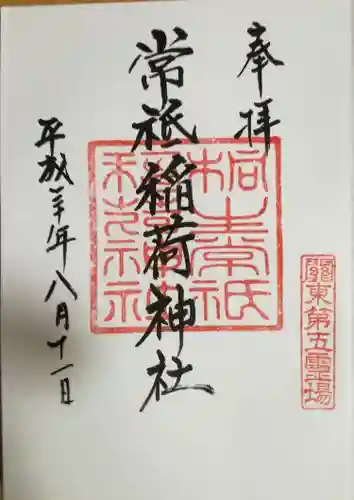 奉拝
常祇稲荷神社
桐生常祇
稲荷神社
關東第五霊場
平成十年八月十一日